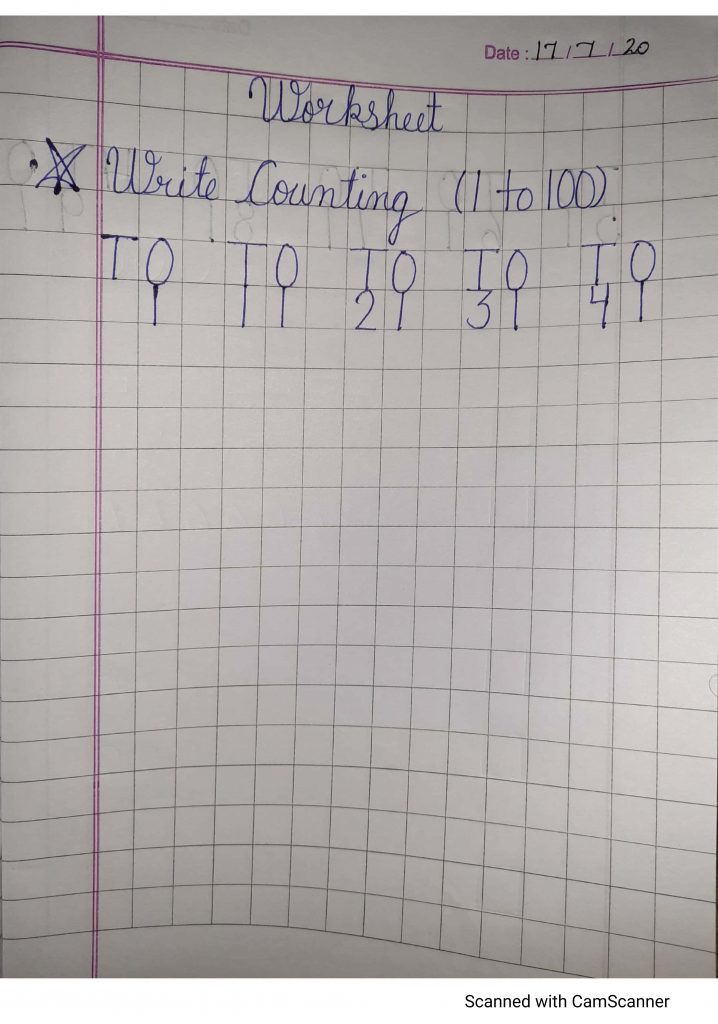 Date : 17/7/20
Worksheet
Write Counting (1 to 100)
T O T O T O T O T O
1 1 1 2 1 3 1 4 1
Scanned with CamScanner